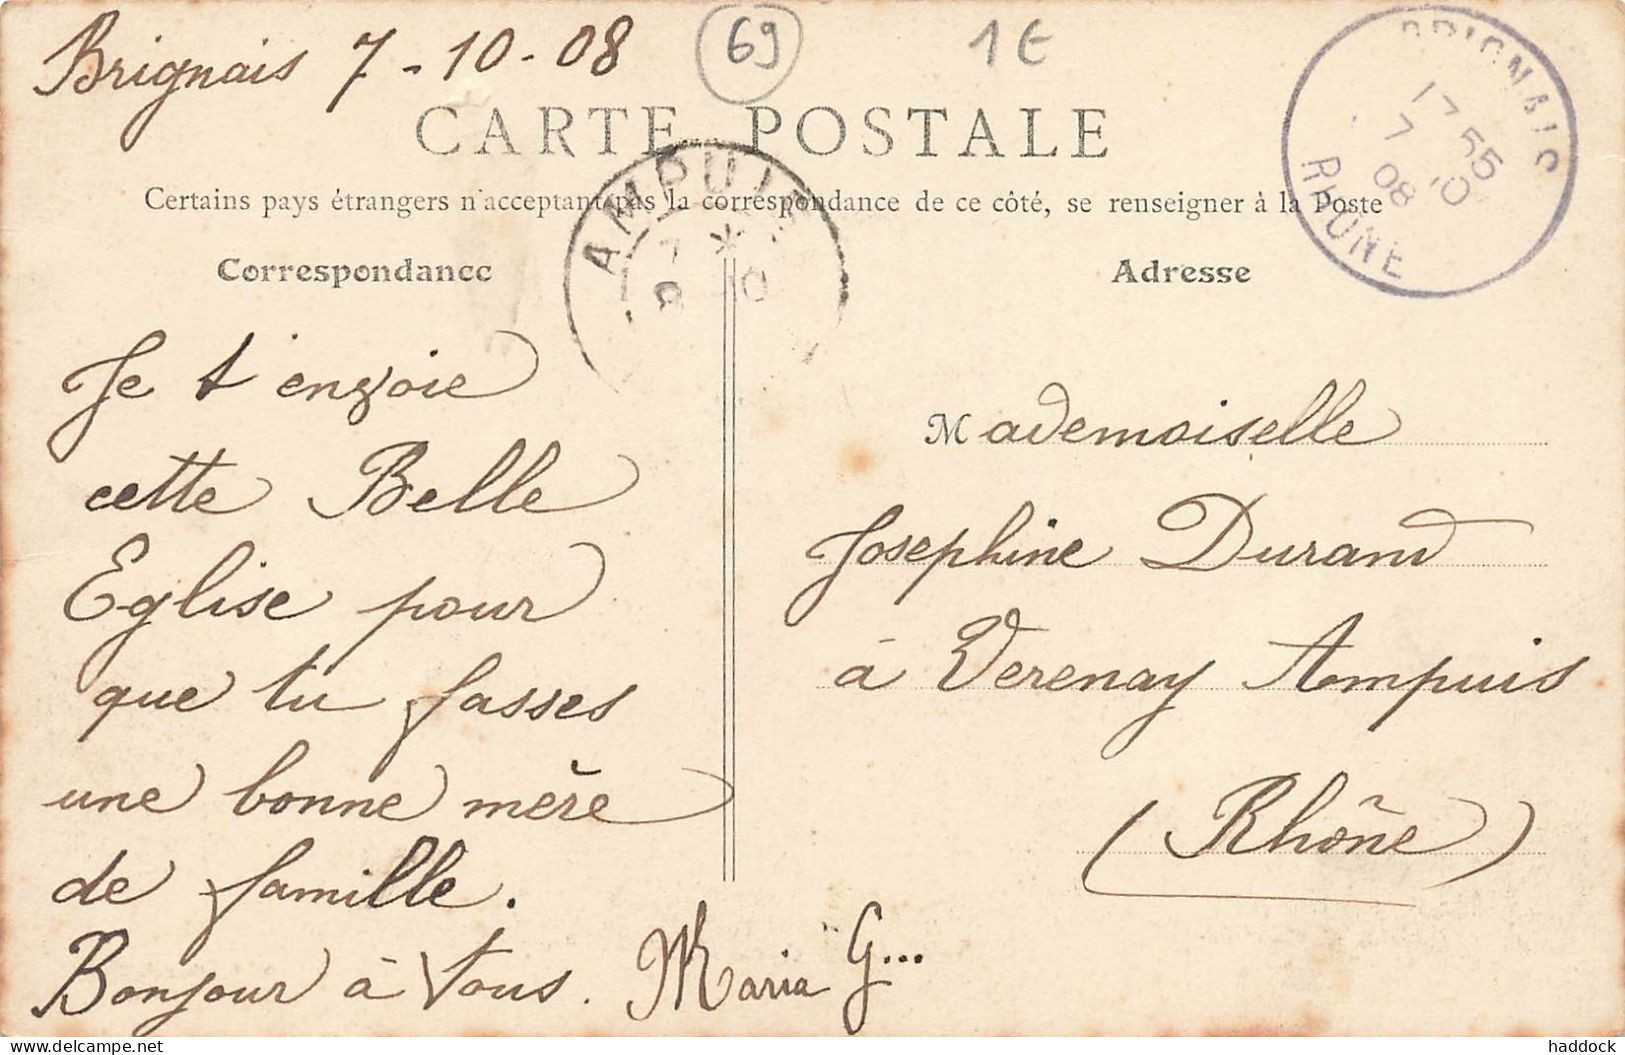 Brignais 7-10-08
69
1€
CARTE POSTALE
Certains pays étrangers n'acceptant pas la correspondance de ce côté, se renseigner à la Poste
BRIGNAIS
17 55
7 10
08
RHONE
AMPUIS
Correspondance
Je t'envoie
cette Belle
Eglise pour
que tu fasses
une bonne mère
de famille.
Bonjour à tous. Maria G...
Adresse
Mademoiselle
Josephine Durand
à Verenay Ampuis
(Rhône)
Delcampe.net
haddock